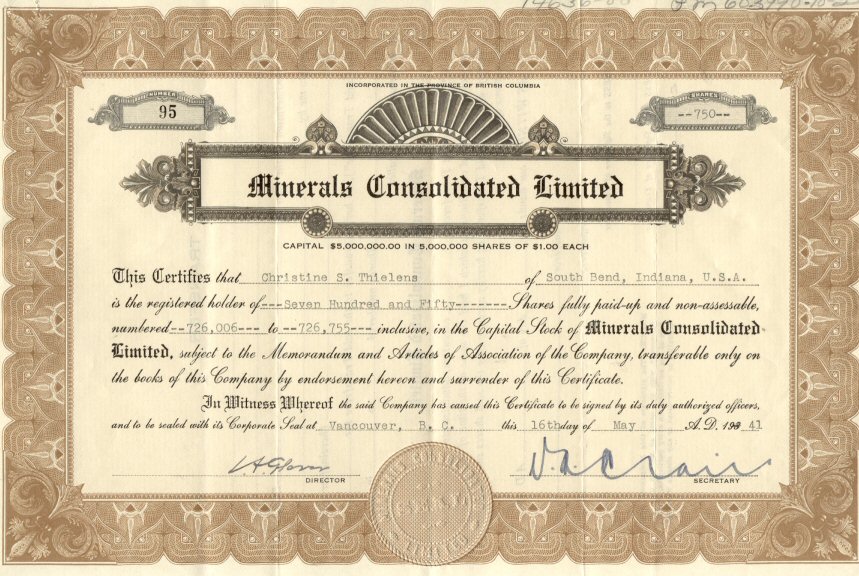 14636-60
INCORPORATED IN THE PROVINCE OF BRITISH COLUMBIA
NUMBER
95
SHARES
--750---
Minerals Consolidated Limited
CAPITAL $5,000,000.00 IN 5,000,000 SHARES OF $1.00 EACH
This Certifies that Christine S. Thielens of South Bend, Indiana, U.S.A.
is the registered holder of---Seven Hundred and Fifty-------Shares fully paid-up and non-assessable,
numbered--726,006--- to --726,755--- inclusive, in the Capital Stock of Minerals Consolidated
Limited, subject to the Memorandum and Articles of Association of the Company, transferable only on
the books of this Company by endorsement hereon and surrender of this Certificate.
In Witness Whereof the said Company has caused this Certificate to be signed by its duly authorized officers,
and to be sealed with its Corporate Seal at Vancouver, B. C. this 16th day of May A.D. 19 41
DIRECTOR
SECRETARY